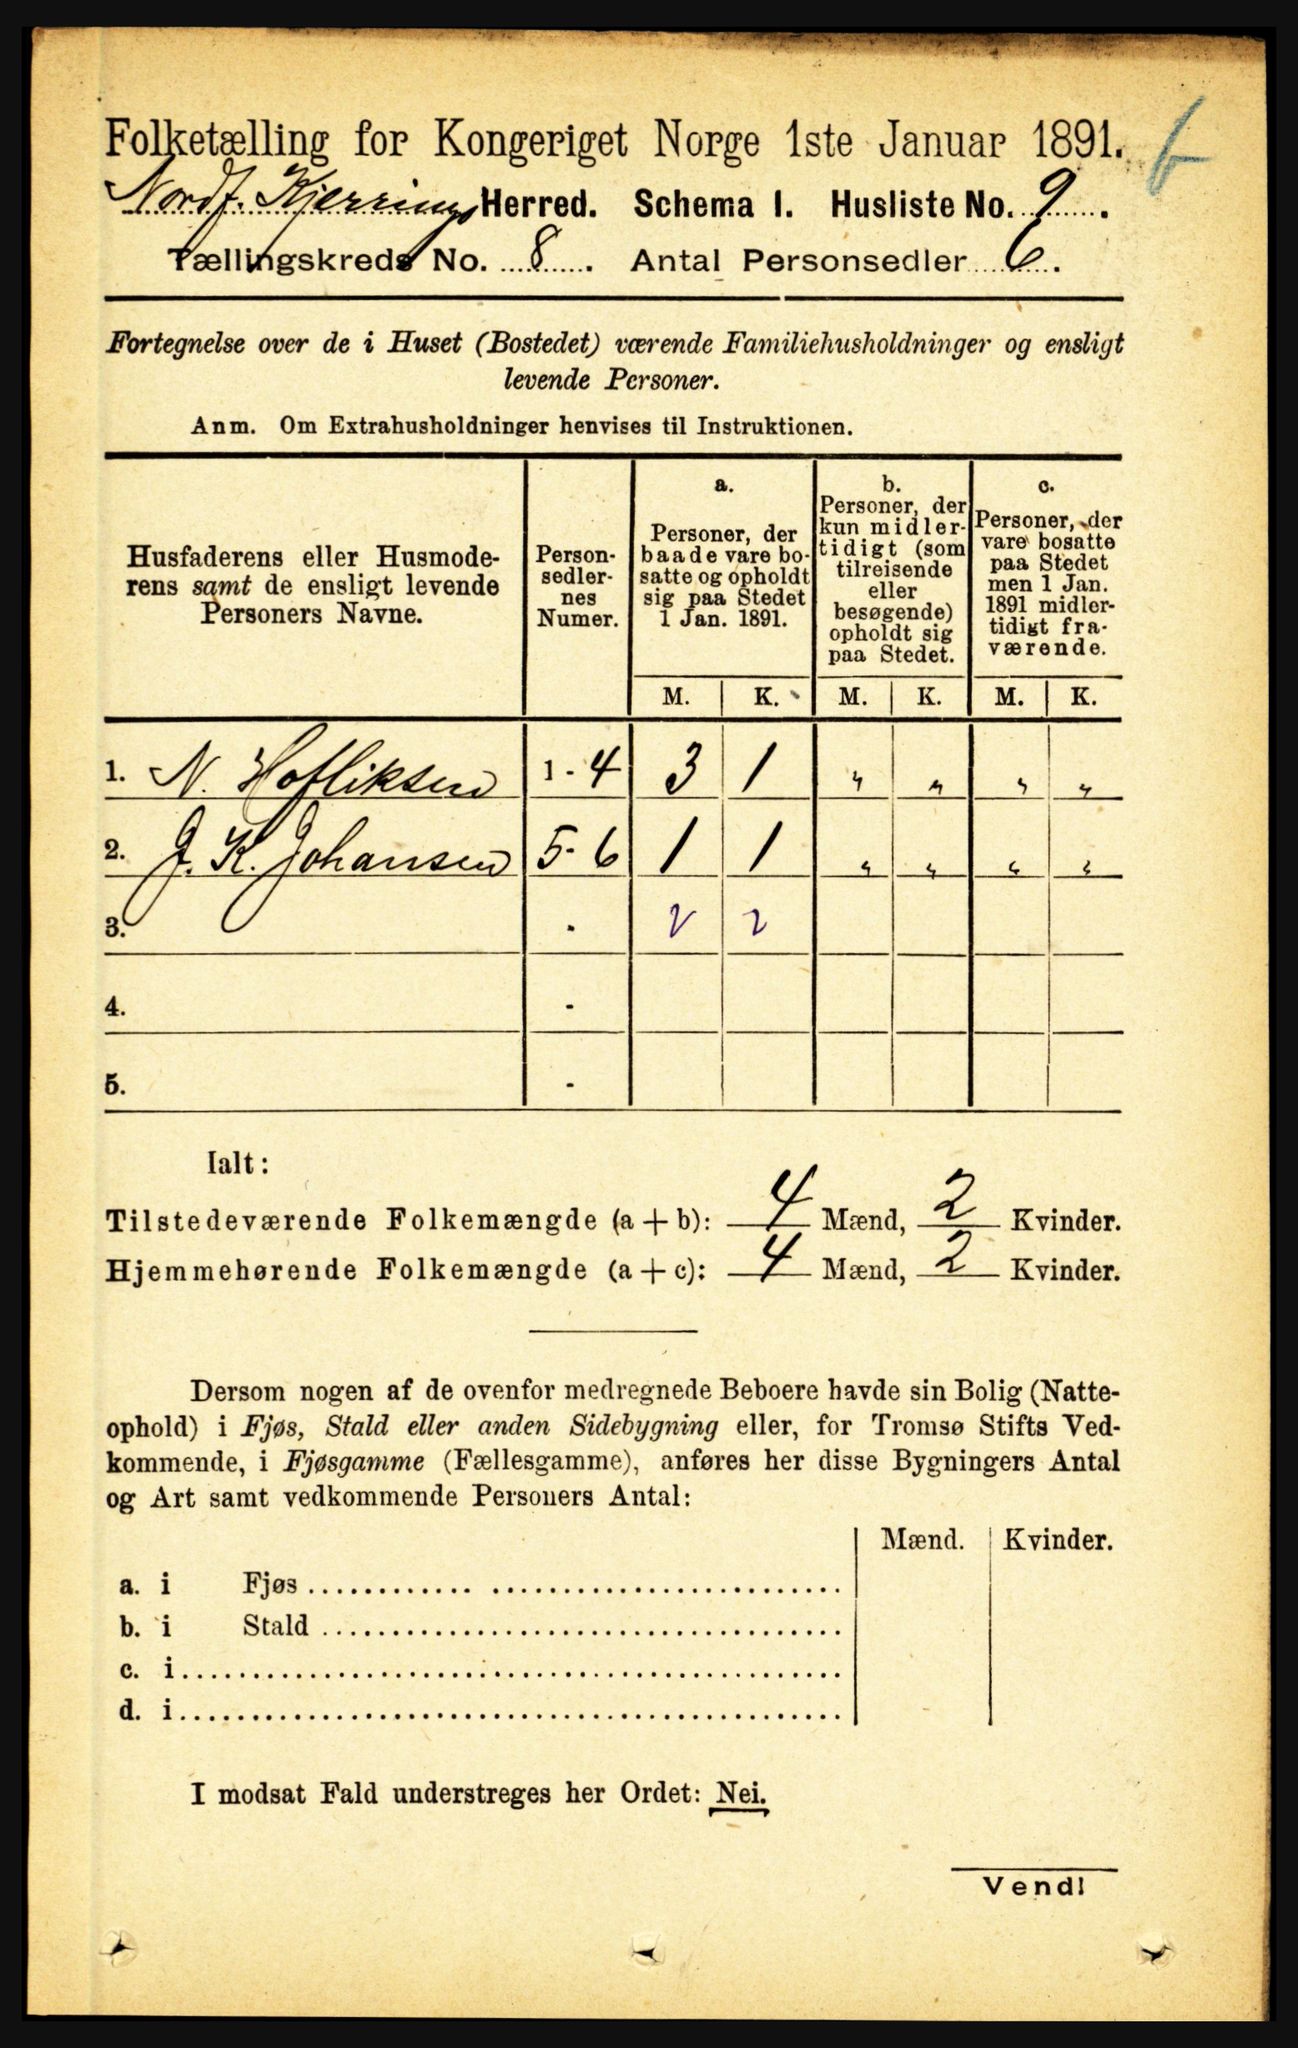 Folketælling for Kongeriget Norge 1ste Januar 1891.
6
Nordf. Kjerring Herred. Schema I. Husliste No. 9.
Tællingskreds No. 8. Antal Personsedler 6.
Fortegnelse over de i Huset (Bostedet) værende Familiehusholdninger og ensligt
levende Personer.
Anm. Om Extrahusholdninger henvises til Instruktionen.
Husfaderens eller Husmode-
rens samt de ensligt levende
Personers Navne.
Person-
sedler-
nes
Numer.
a.
Personer, der
baade vare bo-
satte og opholdt
sig paa Stedet
1 Jan. 1891.
b.
Personer, der
kun midler-
tidigt (som
tilreisende
eller
besøgende)
opholdt sig
paa Stedet.
c.
Personer, der
vare bosatte
paa Stedet
men 1 Jan.
1891 midler-
tidigt fra-
værende.
M. K. M. K. M. K.
1. N. Hofliksen 1 - 4 3 1 " " " "
2. J. K. Johansen 5 - 6 1 1 " " " "
3. - 2 2
4. -
5. -
Ialt:
Tilstedeværende Folkemængde (a + b): 4 Mænd, 2 Kvinder.
Hjemmehørende Folkemængde (a + c): 4 Mænd, 2 Kvinder.
Dersom nogen af de ovenfor medregnede Beboere havde sin Bolig (Natte-
ophold) i Fjøs, Stald eller anden Sidebygning eller, for Tromsø Stifts Ved-
kommende, i Fjøsgamme (Fællesgamme), anføres her disse Bygningers Antal
og Art samt vedkommende Personers Antal:
Mænd. Kvinder.
a. i Fjøs
b. i Stald
c. i
d. i
I modsat Fald understreges her Ordet: Nei.
Vend!